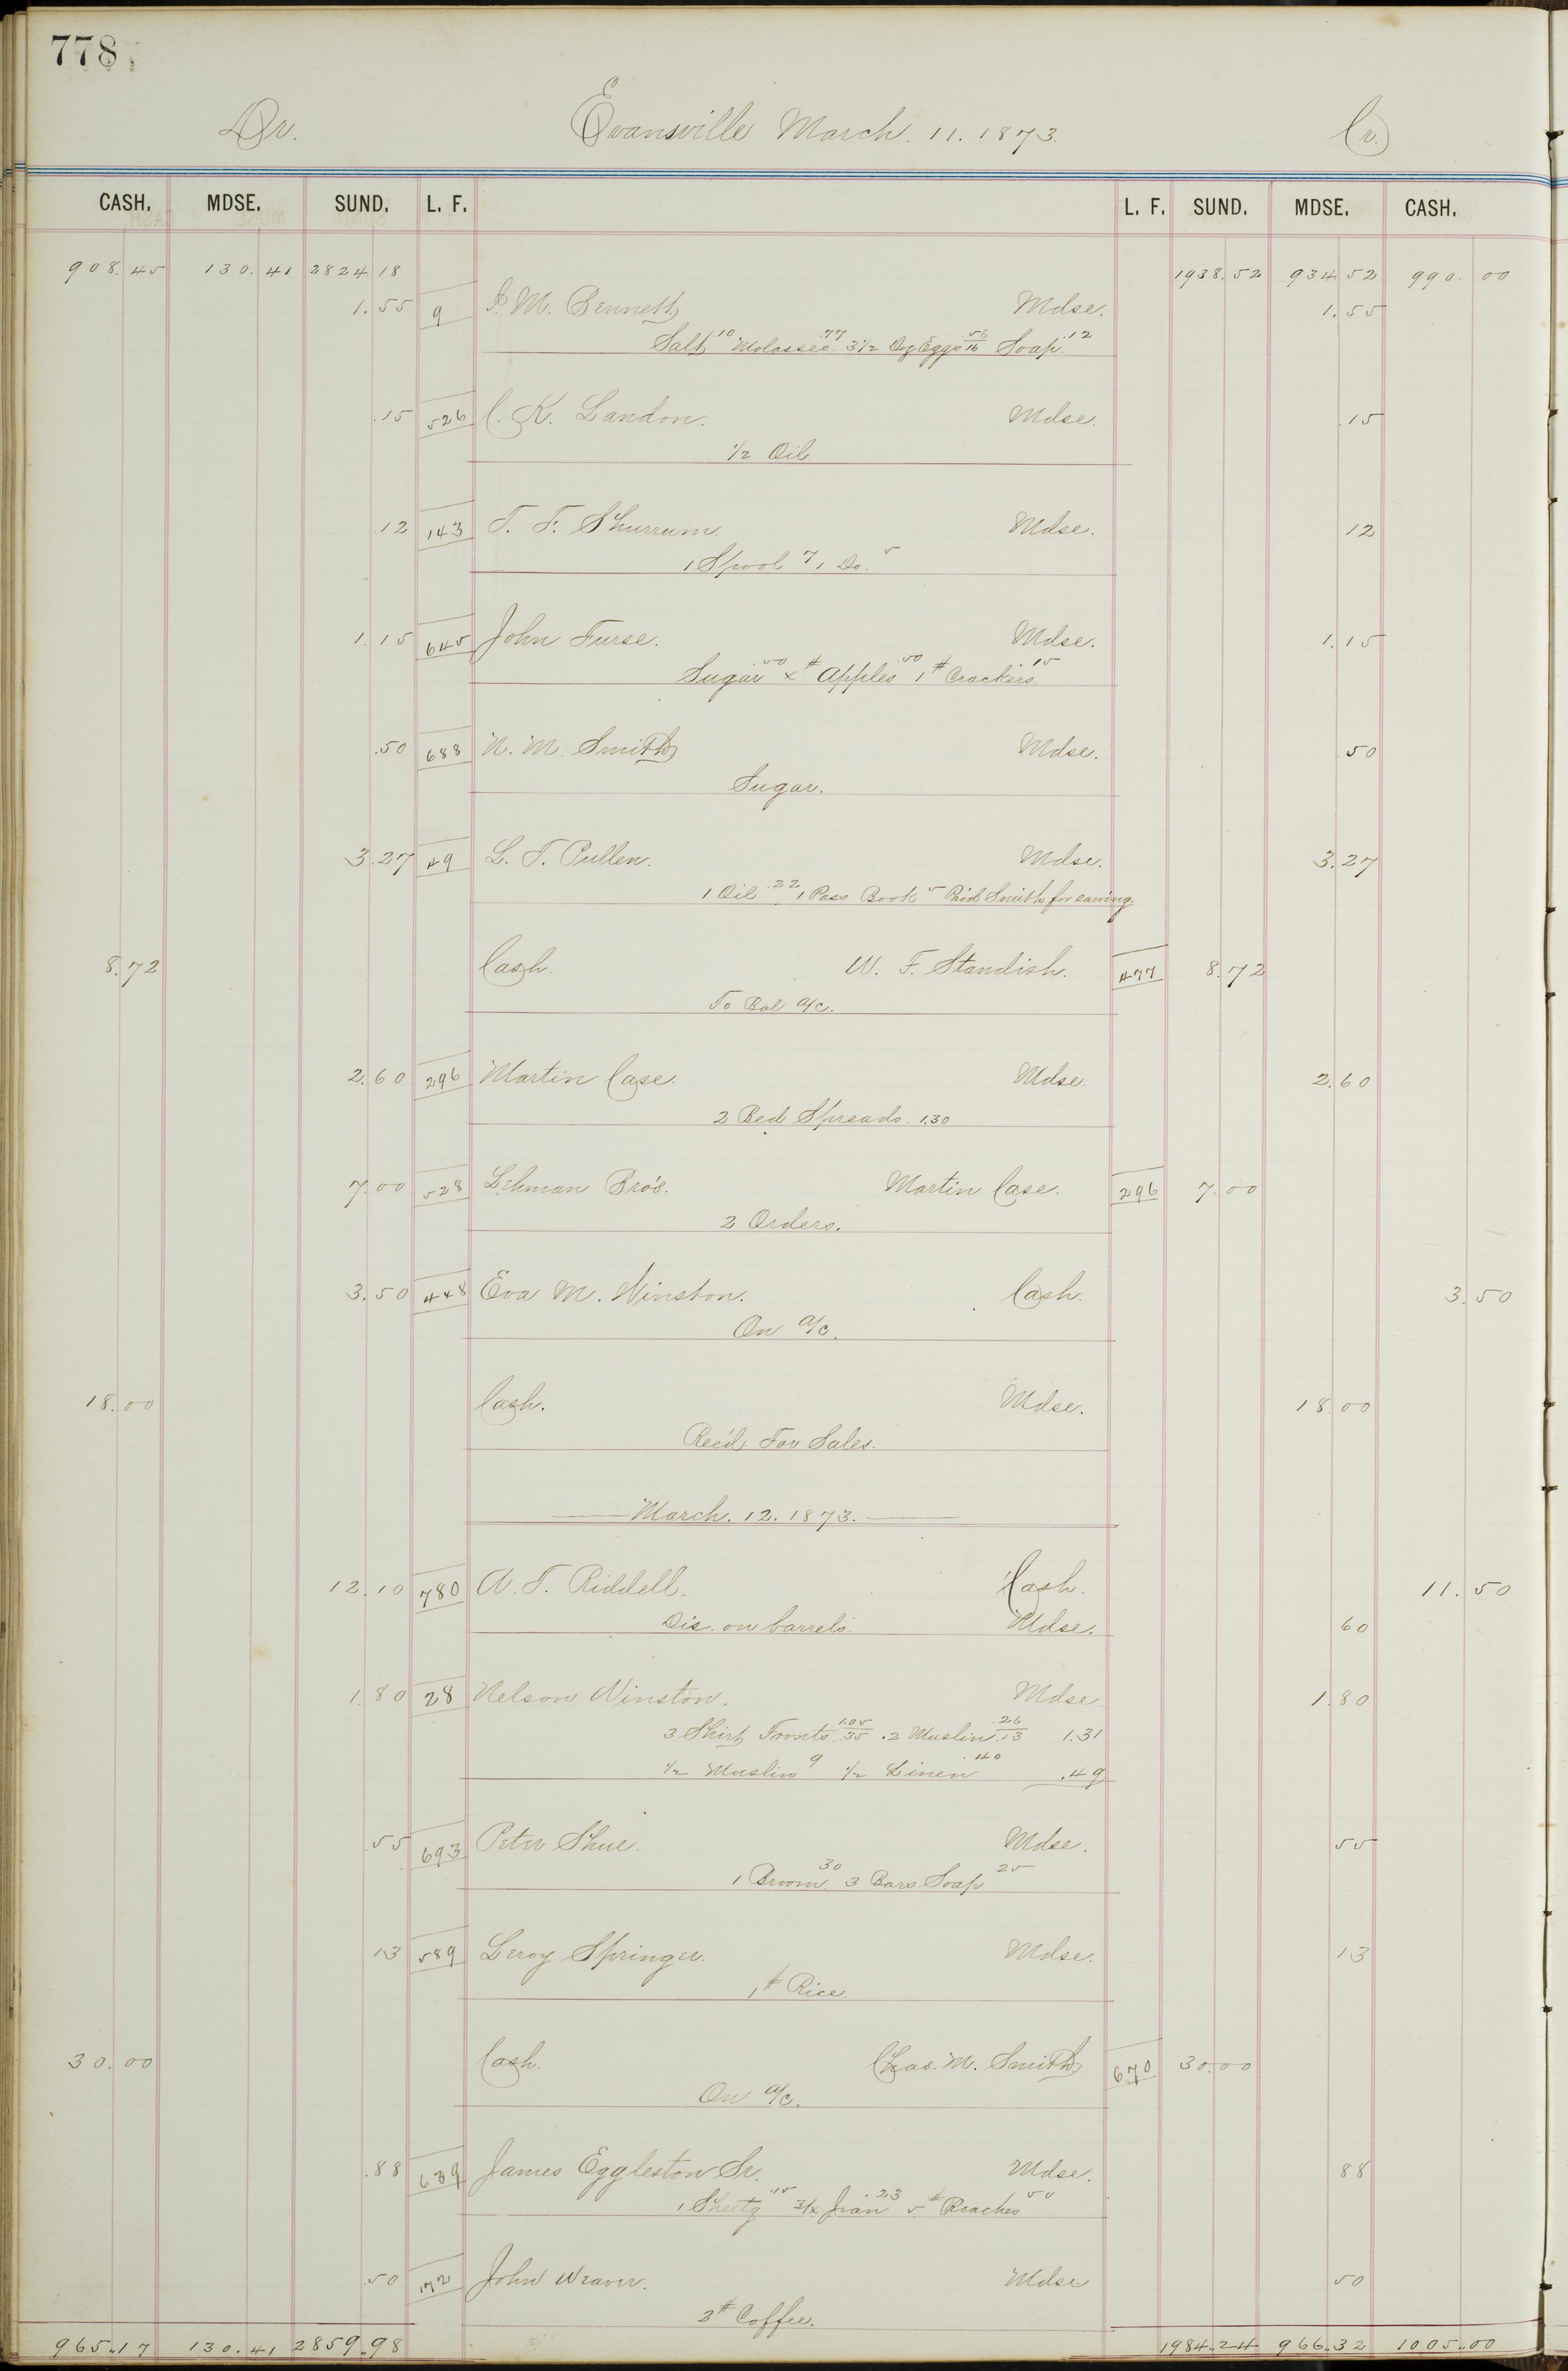 778
Dr. Evansville March. 11. 1873. Cr.
CASH. MDSE. SUND. L. F. L. F. SUND. MDSE. CASH.
908.45 130.41 2824.18 1938.52 934.52 990.00
1.55 9 J. M. Bennett Mdse. 1.55
Salt 10 Molasses .77 3 1/2 Doz Eggs 56/16 Soap .12
.15 526 C. K. Landon. Mdse. .15
1/2 Oil
12 143 T. F. Shurrum. Mdse. 12
1 Spool 7 1 Do. 5
1.15 645 John Furse. Mdse. 1.15
Sugar 50 4 # Apples .50 1 # Crackers 15
.50 688 N. M. Smith Mdse. 50
Sugar.
3.27 49 L. T. Pullen. Mdse. 3.27
1 Oil .22 1 Pass Book 5 Paid Smith for sawing.
8.72 Cash. W. F. Standish. 477 8.72
To Bal a/c.
2.60 296 Martin Case. Mdse. 2.60
2 Bed Spreads. 1.30
7.00 528 Lehman Bro's. Martin Case. 296 7.00
2 Orders.
3.50 448 Eva M. Winston. Cash. 3.50
On a/c.
18.00 Cash. Mdse. 18.00
Rec'd. For Sales.
March. 12. 1873.
12.10 780 A. T. Riddell. Cash. 11.50
Dis. on barrels. Mdse. 60
1.80 28 Nelson Winston. Mdse 1.80
3 Shirt Fronts 1.05/.35 .2 Muslin .26/.13 1.31
1/2 Muslin 9 1/2 Linen .40 .49
55 693 Peter Shue. Mdse. 55
1 Broom 30 3 Bars Soap 25
13 589 Leroy Springer. Mdse. 13
1 # Rice.
30.00 Cash. Chas. M. Smith 670 30.00
On a/c.
.88 639 James Eggleston Sr. Mdse. 88
1 Sheetg .15 3/4 Jean .23 5 # Peaches 50
50 172 John Weaver. Mdse 50
2 # Coffee.
965.17 130.41 2859.98 1984.24 966.32 1005.00